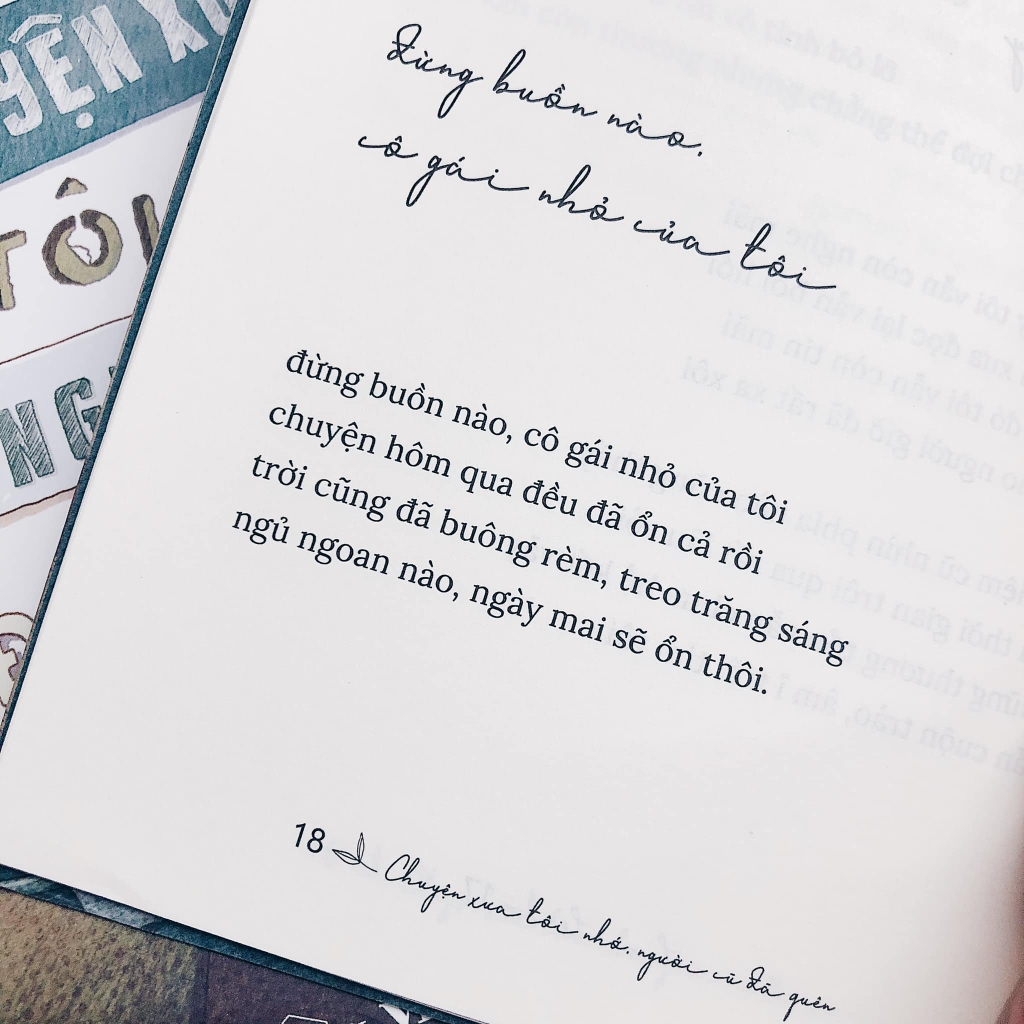 YỆN XƯ
TÔI
NG
đừng buồn nào,
cô gái nhỏ của tôi
đừng buồn nào, cô gái nhỏ của tôi
chuyện hôm qua đều đã ổn cả rồi
trời cũng đã buông rèm, treo trăng sáng
ngủ ngoan nào, ngày mai sẽ ổn thôi.
18 Chuyện xưa tôi nhớ, người cũ đã quên